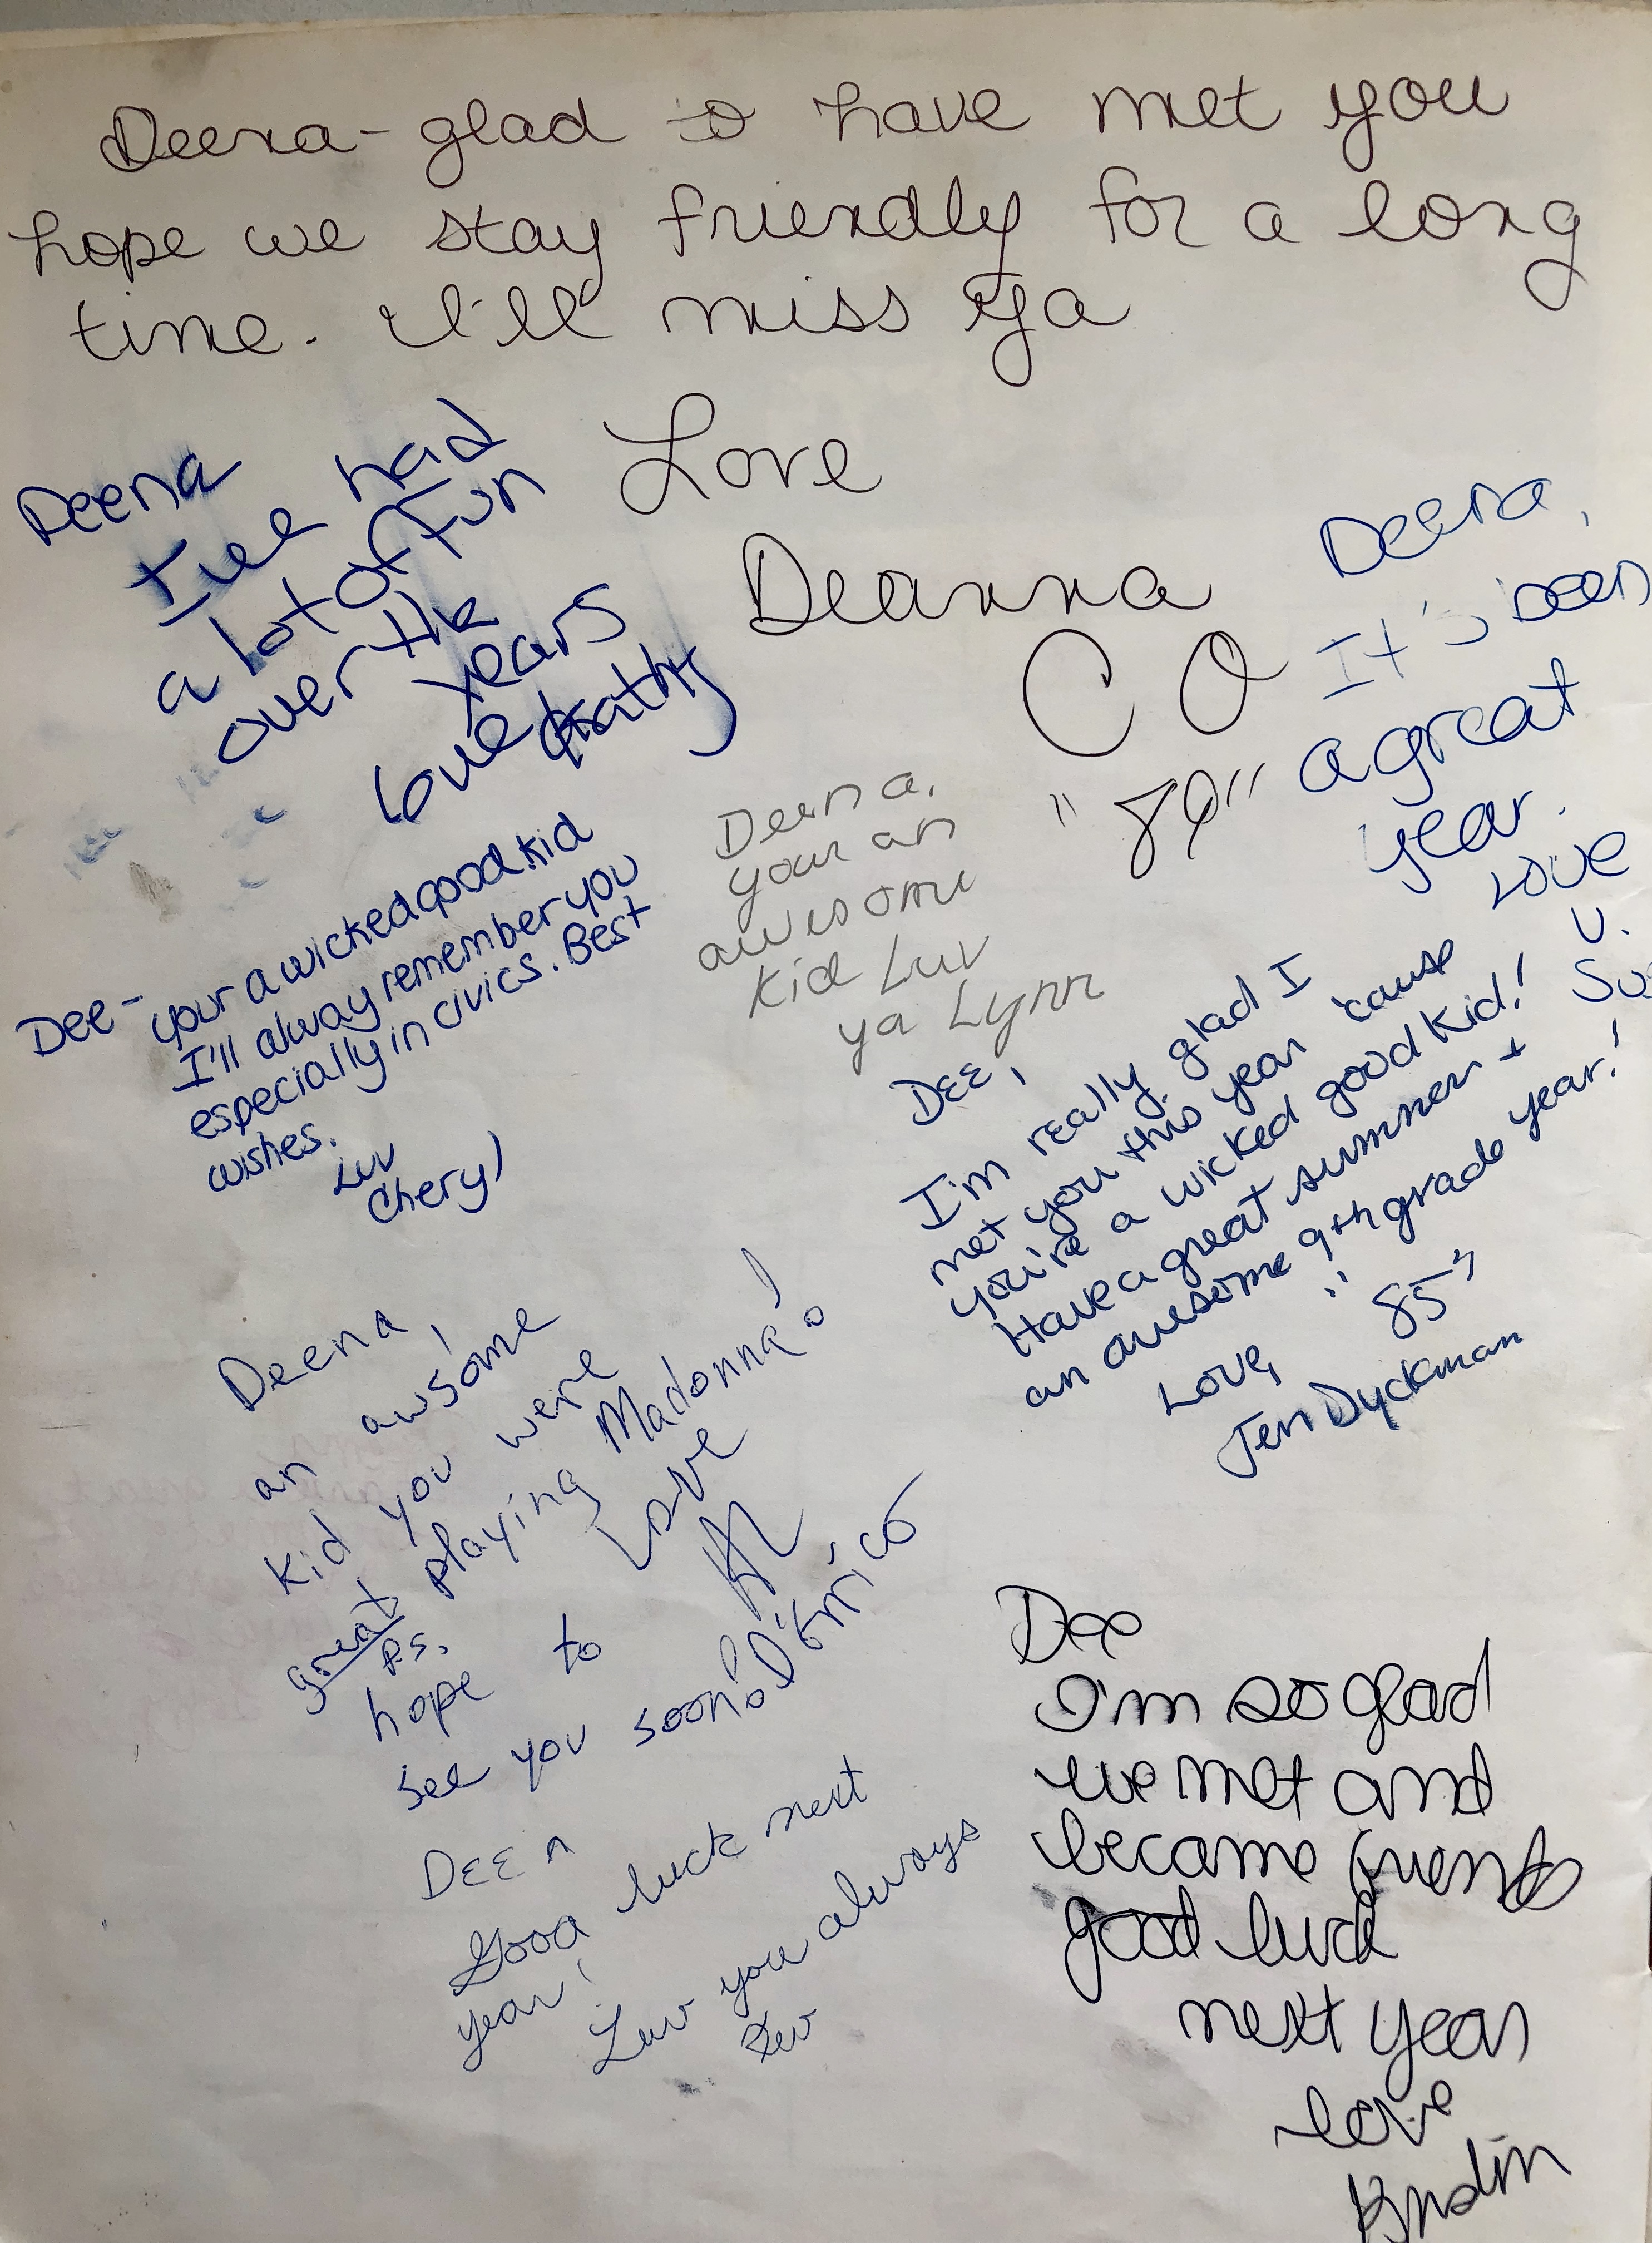 Deena - glad to have met you
hope we stay friendly for a long
time. I'll miss ya
Love
Deanna
C O
"89"
Deena
I've had
a lot of Fun
over the
years
Love
Kathy
Deena,
It's been
a great
year.
Love
U.
Deena,
your an
awesome
kid Luv
ya Lynn
Dee -
your a wicked good kid
I'll alway remember you
especially in civics. Best
wishes.
Luv
Cheryl
Dee,
I'm really glad I
met you this year 'cause
you're a wicked good kid!
Have a great summer +
an awesome 9th grade year!
Love, "85"
Jen Dyckman
Deena,
an awsome
kid you were
great playing Madonna!
Love
Al
D'Errico
P.S.
hope to
see you soon!
DEE n
Good luck next
year!
Luv you always
Kev
Dee
I'm so glad
we met and
became friends
good luck
next year
love